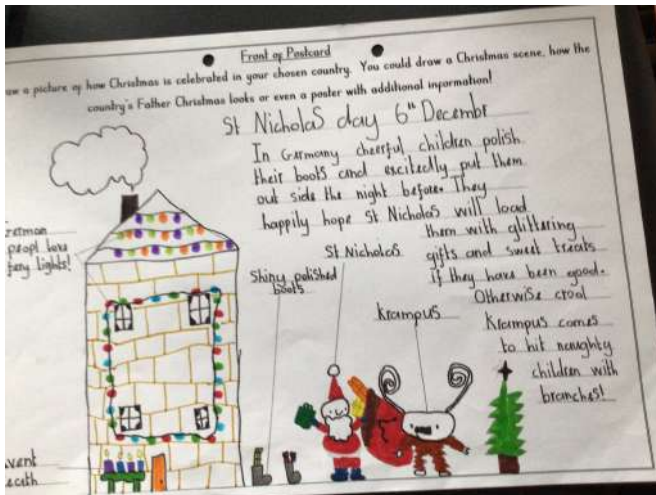 Front of Postcard
a picture of how Christmas is celebrated in your chosen country. You could draw a Christmas scene, how the
country's Father Christmas looks or even a poster with additional information!
St Nicholas day 6th Decembr
In Germany cheerful children polish
their boots and excitedly put them
out side the night before. They
happily hope St Nicholas will load
them with glittering
gifts and sweet treats
if they have been good.
Otherwise crool
Krampus comes
to hit naughty
children with
branches!
St Nicholas
Shiny polished
boots
Krampus
lights!